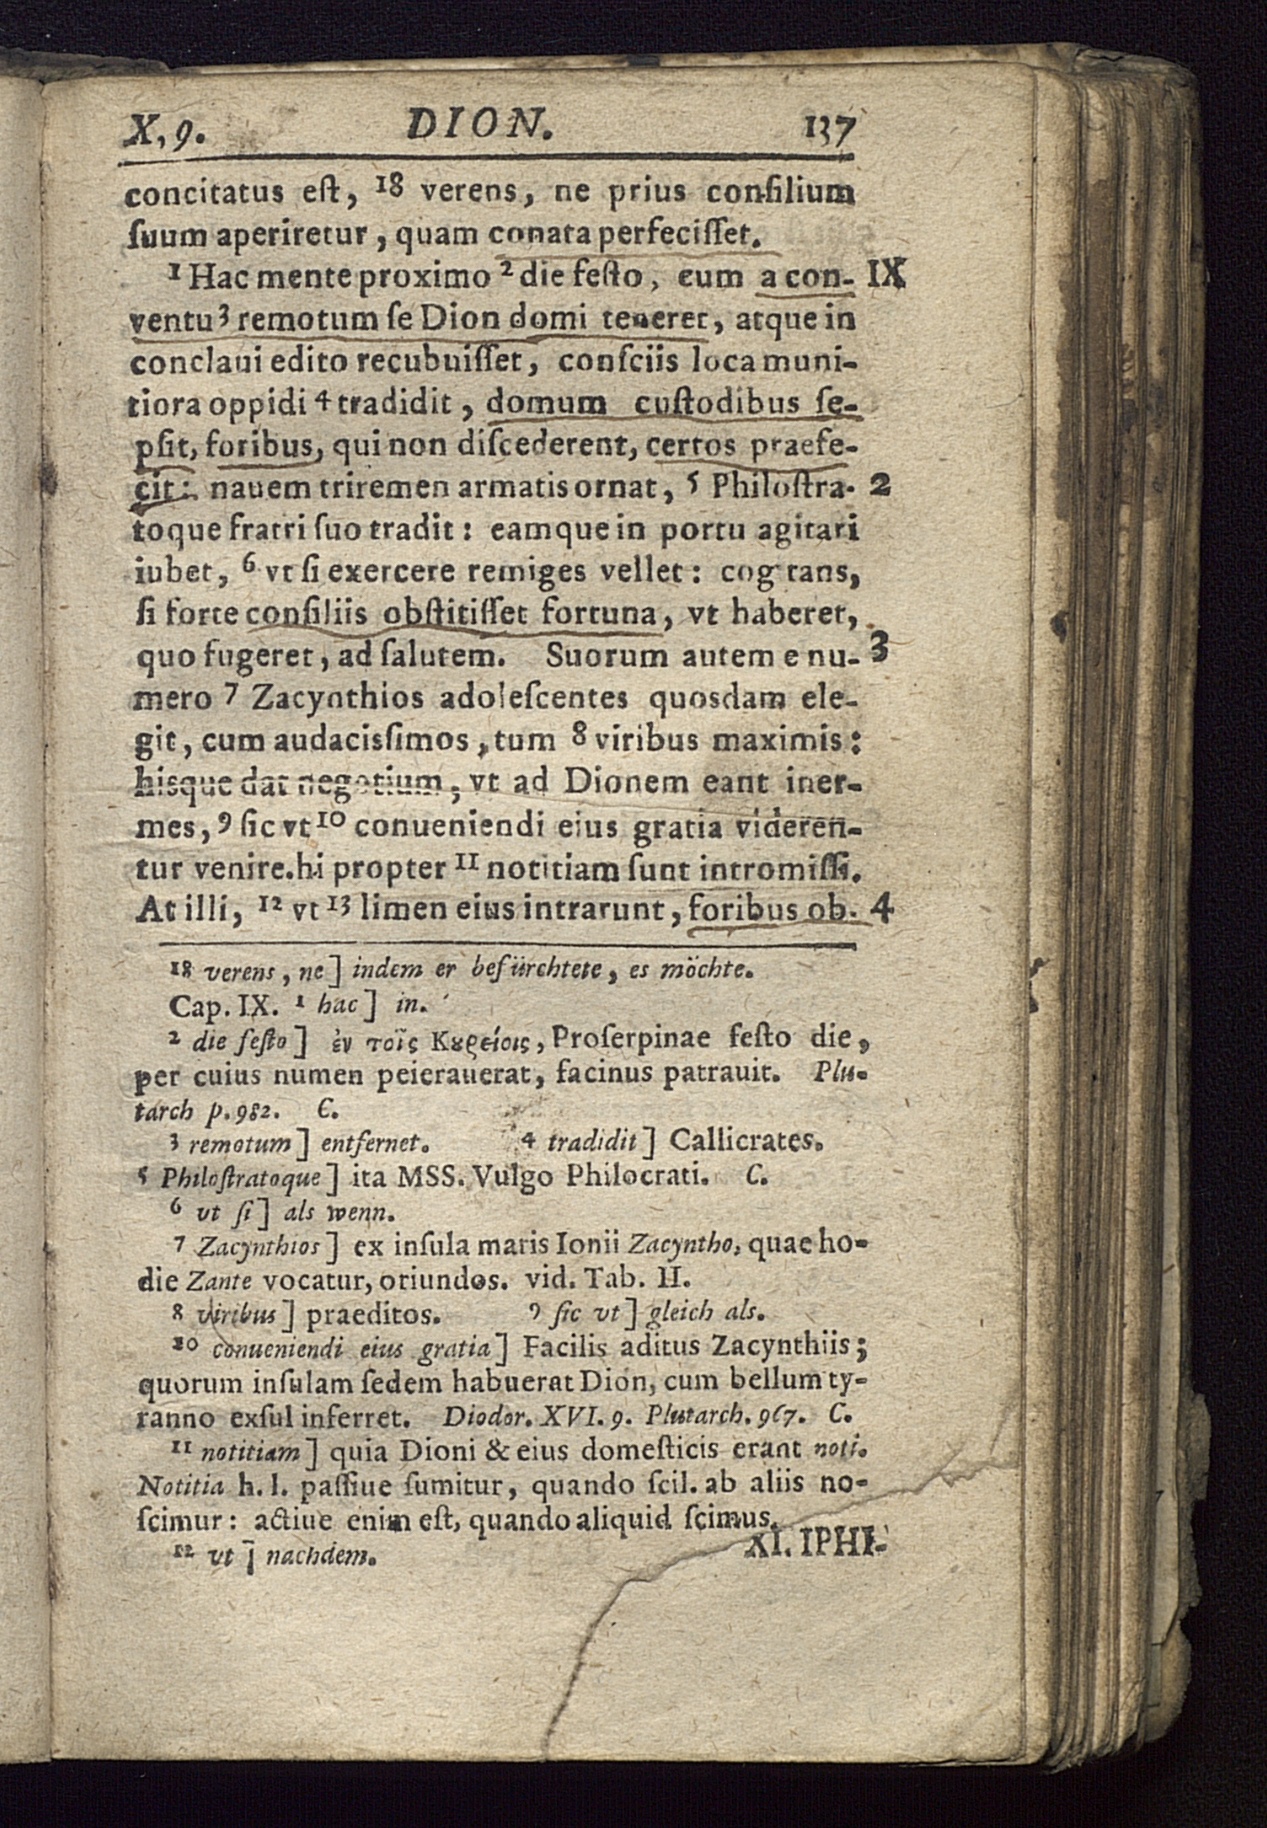 X, 9. DION. 137
concitatus eſt, 18 verens, ne prius conſilium
ſuum aperiretur, quam conata perfeciſſet.
1 Hac mente proximo 2 die feſto, cum a con- IX
ventu 3 remotum ſe Dion domi teneret, atque in
conclaui edito recubuiſſet, conſciis loca muni-
tiora oppidi 4 tradidit, domum cuſtodibus ſe-
pſit, foribus, qui non diſcederent, certos praefe-
cit: nauem triremen armatis ornat, 5 Philoſtra- 2
toque fratri ſuo tradit: eamque in portu agitari
iubet, 6 vt ſi exercere remiges vellet: cogitans,
ſi forte conſiliis obſtitiſſet fortuna, vt haberet,
quo fugeret, ad ſalutem. Suorum autem e nu- 3
mero 7 Zacynthios adoleſcentes quosdam ele-
git, cum audacisſimos, tum 8 viribus maximis:
hisque dat negotium, vt ad Dionem eant iner-
mes, 9 ſic vt 10 conueniendi eius gratia videren-
tur venire. hi propter 11 notitiam ſunt intromiſſi.
At illi, 12 vt 13 limen eius intrarunt, foribus ob- 4
18 verens, ne] indem er befürchtete, es möchte.
Cap. IX. 1 hac] in.
2 die feſto] ἐν τοῖς Κȣρείοις, Proſerpinae feſto die,
per cuius numen peierauerat, facinus patrauit. Plu-
tarch p. 982. C.
3 remotum] entfernet. 4 tradidit] Callicrates.
5 Philoſtratoque] ita MSS. Vulgo Philocrati. C.
6 vt ſi] als wenn.
7 Zacynthios] ex inſula maris Ionii Zacyntho, quae ho-
die Zante vocatur, oriundos. vid. Tab. II.
8 viribus] praeditos. 9 ſic vt] gleich als.
10 conueniendi eius gratia] Facilis aditus Zacynthiis;
quorum inſulam ſedem habuerat Dion, cum bellum ty-
ranno exſul inferret. Diodor. XVI. 9. Plutarch. 967. C.
11 notitiam] quia Dioni & eius domeſticis erant noti.
Notitia h. l. paſſiue ſumitur, quando ſcil. ab aliis no-
ſcimur: actiue enim eſt, quando aliquid ſcimus.
12 vt] nachdem. XI. IPHI-